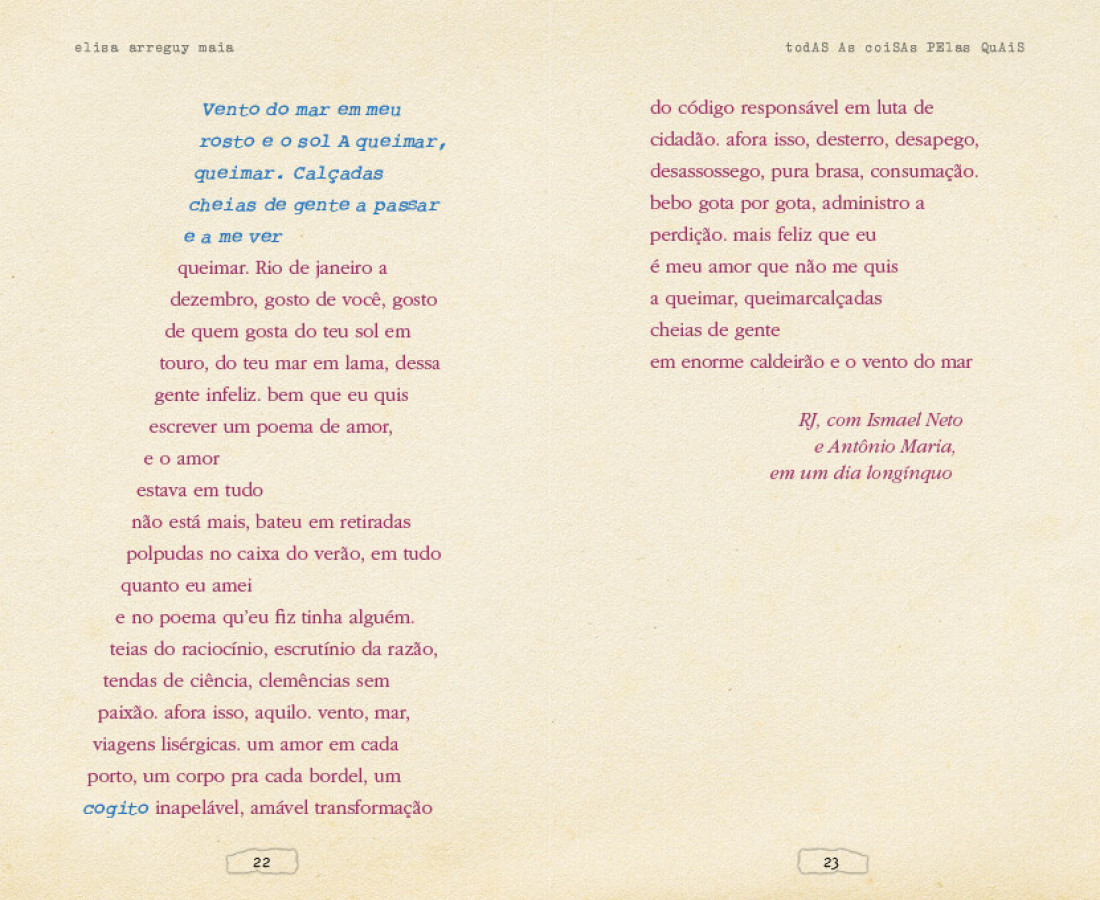 elisa arreguy maia
Vento do mar em meu
rosto e o sol A queimar,
queimar. Calçadas
cheias de gente a passar
e a me ver
queimar. Rio de janeiro a
dezembro, gosto de você, gosto
de quem gosta do teu sol em
touro, do teu mar em lama, dessa
gente infeliz. bem que eu quis
escrever um poema de amor,
e o amor
estava em tudo
não está mais, bateu em retiradas
polpudas no caixa do verão, em tudo
quanto eu amei
e no poema qu'eu fiz tinha alguém.
teias do raciocínio, escrutínio da razão,
tendas de ciência, clemências sem
paixão. afora isso, aquilo. vento, mar,
viagens lisérgicas. um amor em cada
porto, um corpo pra cada bordel, um
cogito inapelável, amável transformação
22
todAS As coiSAs PElas QuAiS
do código responsável em luta de
cidadão. afora isso, desterro, desapego,
desassossego, pura brasa, consumação.
bebo gota por gota, administro a
perdição. mais feliz que eu
é meu amor que não me quis
a queimar, queimarcalçadas
cheias de gente
em enorme caldeirão e o vento do mar
RJ, com Ismael Neto
e Antônio Maria,
em um dia longínquo
23